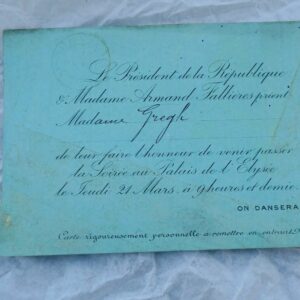 Le Président de la République
& Madame Armand Fallières prient
Madame Gregh
de leur faire l'honneur de venir passer
la Soirée au Palais de l'Elysée
le Jeudi 21 Mars, à 9 heures et demie
ON DANSERA
Carte rigoureusement personnelle à remettre en entrant